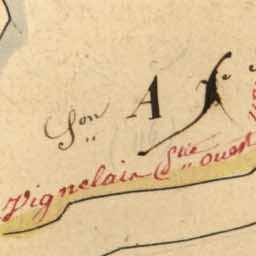 Son A
Vignelair Stie ouest